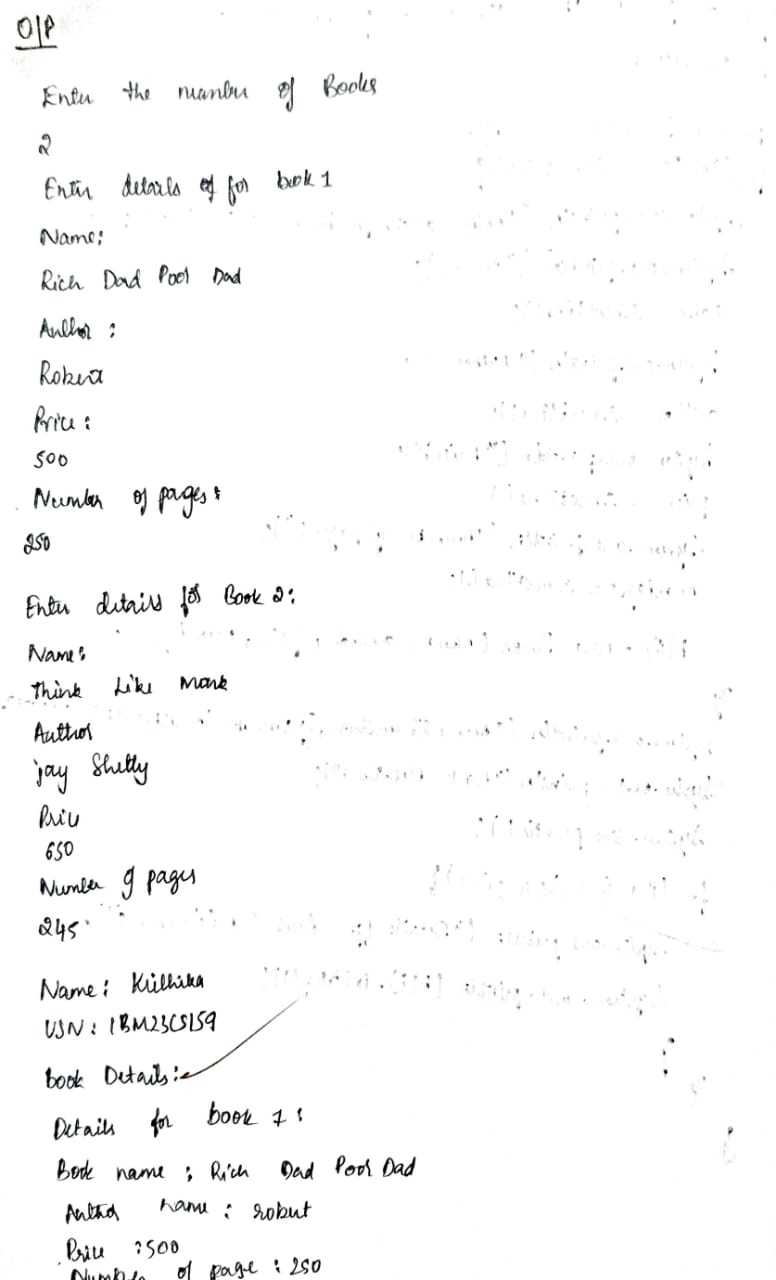 O/P
Enter the number of Books
2
Enter details of for book 1
Name:
Rich Dad Poor Dad
Author :
Robert
Price :
500
Number of pages :
250
Enter details for Book 2:
Name:
Think Like Monk
Author
jay Shetty
Price
650
Number of pages
245
Name : Krithika
USN : 1BM23CS159
book Details :-
Details for book 1 :
Book name : Rich Dad Poor Dad
Author name : robert
Price : 500
Number of page : 250